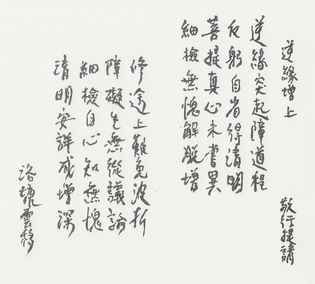 逆緣增上
逆緣突起障道程
反躬自省得清明
菩提真心未嘗異
細檢無愧解脫增
敬行提請
修途上難免波折
障礙生無從議論
細檢自心知無愧
清明安詳咸增深
洛杉雲移